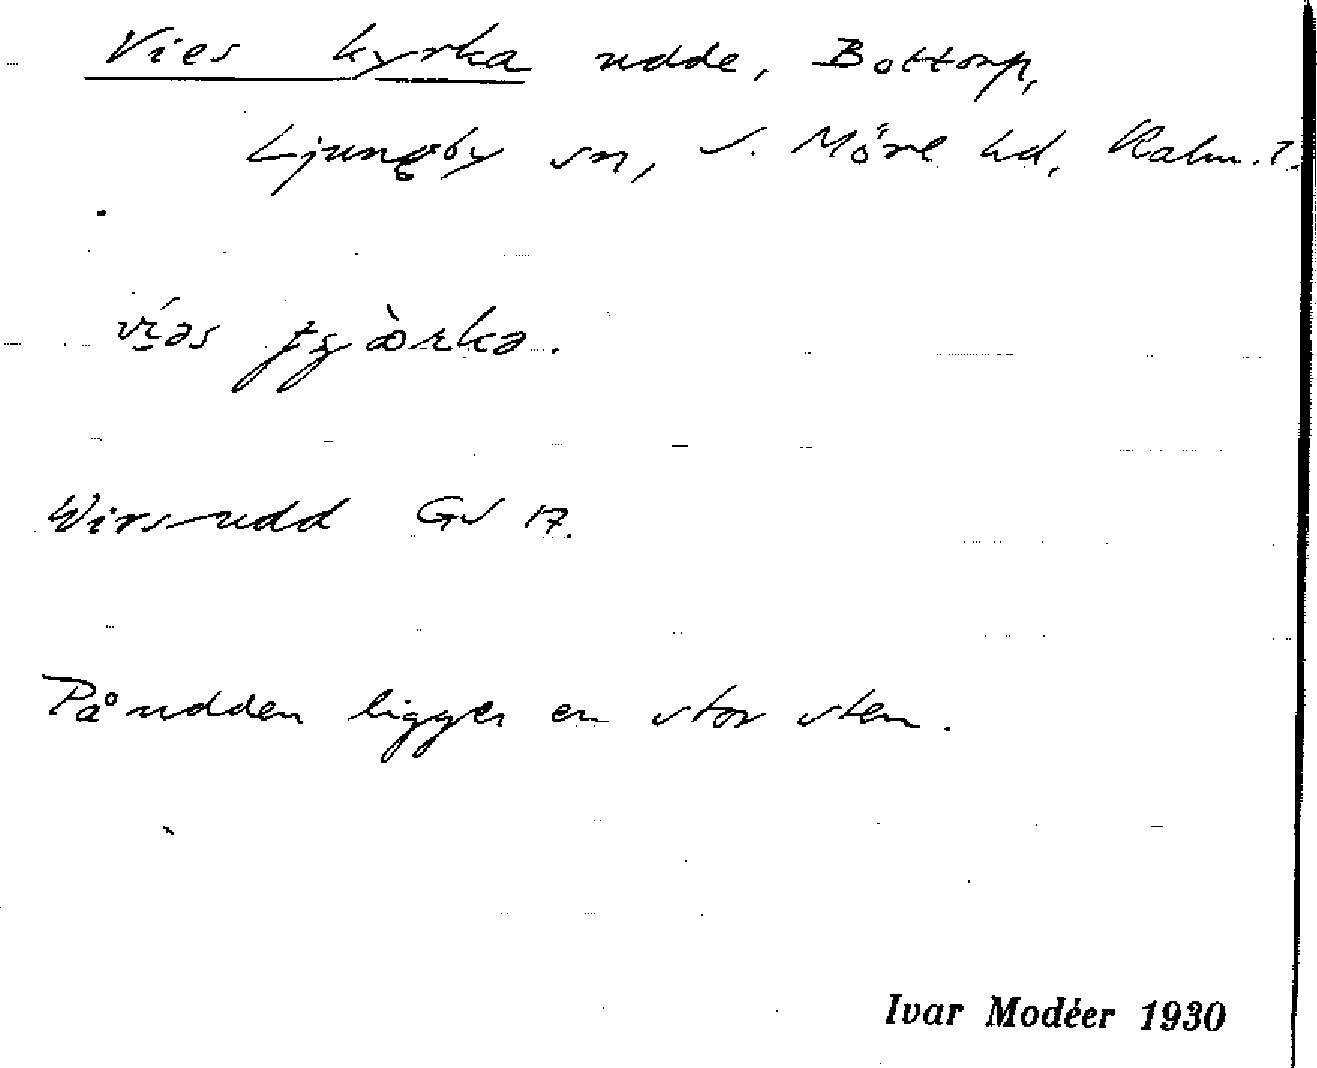 Vies kyrka udde, Bottorp,
Ljungby sn, S. Möre hd, Kalm. l.
víəs
Wirs-udd GS 17.
På udden ligger en stor sten.
Ivar Modéer 1930